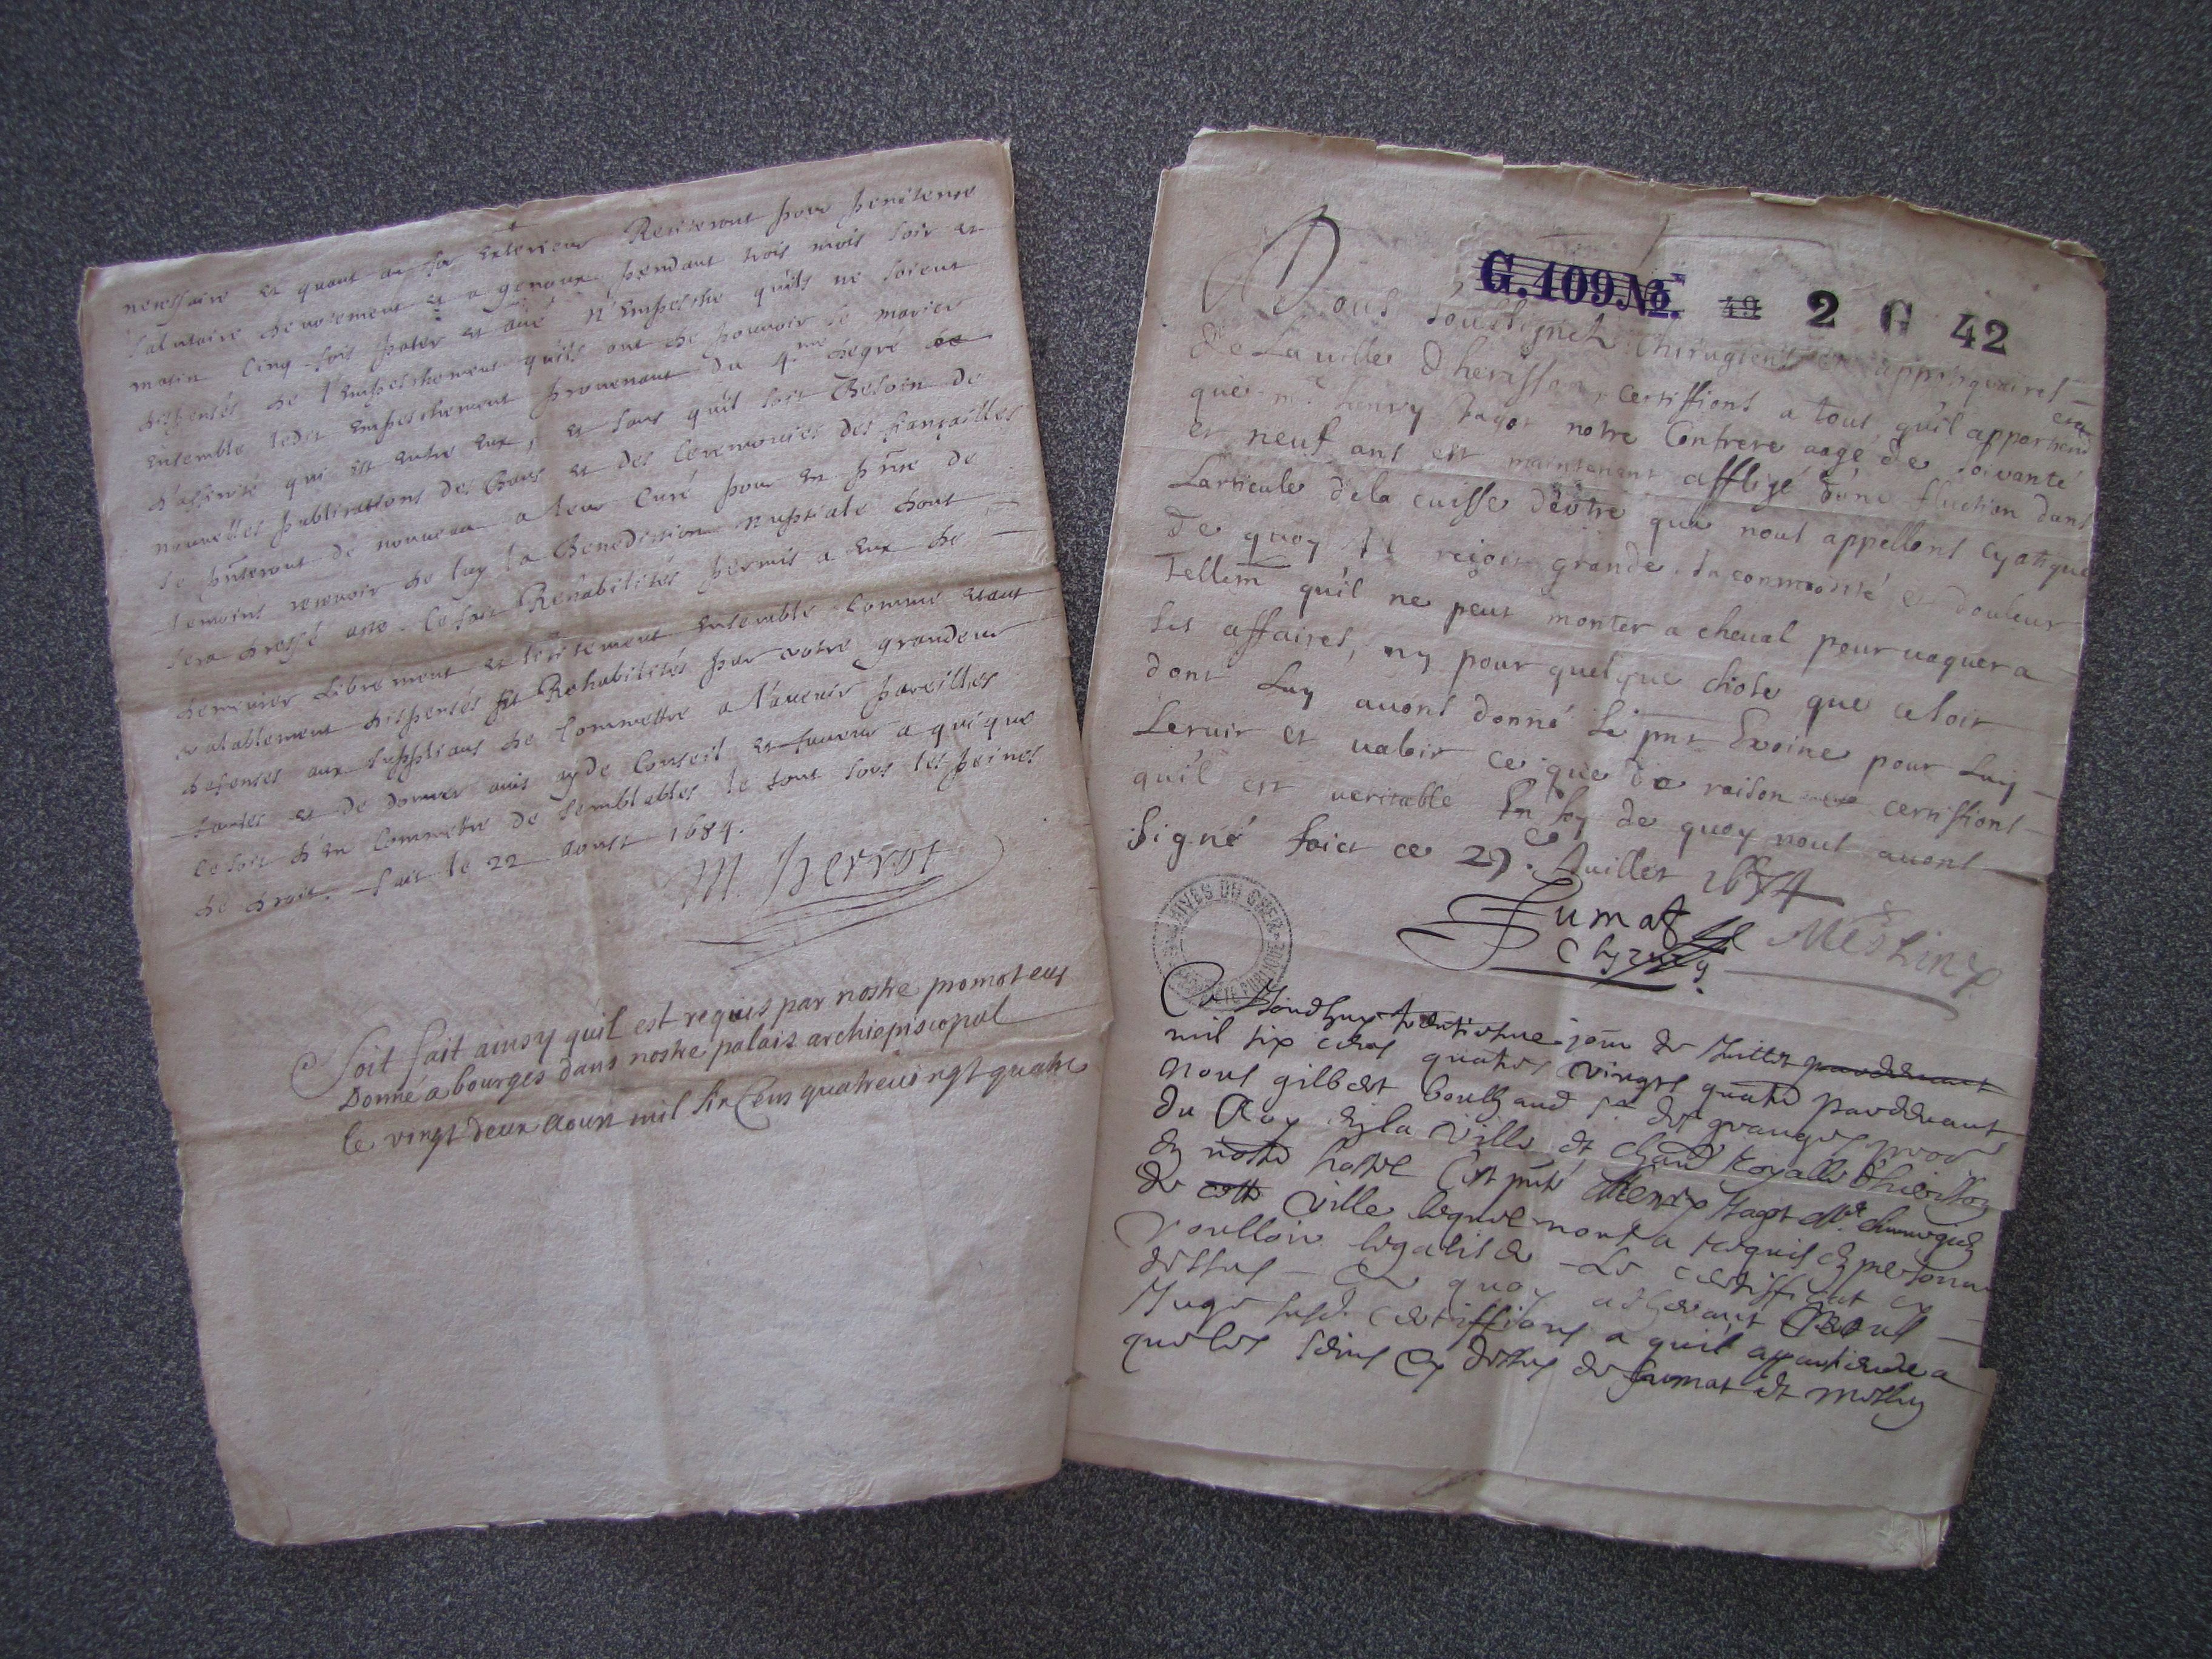 necessaire et quant au for exterieur Reciteront pour penitence
salutaire devotement et a genoux pendant trois mois soir et
matin Cinq fois pater et ave N'Empesche quils ne soient
dispensés de l'Empeschement quils ont de pouvoir se marier
Ensemble ledit Empeschement provenant du 4.me degré de
d'affinité qui est entre eux, et sans quil soit Besoin de
nouvelles publications des bans et des Ceremonies des fiançailles
se pnteront de nouveau a leur Curé pour en pnce de
temoins recevoir de luy la Benediction nuptiale dont
sera dressé acte Ce fait Rehabilités permis a eux de
demeurer Librement et licitement ensemble comme etant
valablement dispensés et Rehabilités par votre grandeur
defenses aux supplians de Commettre a l'avenir pareilles
fautes et de donner avis ayde Conseil et faveur a quique
ce soit d'en Commettre de semblables le tout sous les peines
de droit. fait le 22 aoust 1684.
M. herrot
Soit fait ainsy quil est requis par nostre promoteur
Donné a bourges dans nostre palais archiepiscopal
le vingt deux Aoust mil six Cens quatrevingt quatre
G.109.No. 49 2 G 42
Nous soussignez Chirugiens et appotiquaires
de La ville D'herisson certiffions a tous qu'il appartiendra
que mr. henry Jagot notre Confrere aagé de soixante
et neuf ans est maintenant affligé d'une fluction dans
Larticule de la cuisse dextre que nous appellons Cyatique
De quoy il reçoit grande Incommodité et douleur
Tellemt qu'il ne peut monter a cheval pour vaquer a
ses affaires, ny pour quelque chose que ce soit
dont Luy avons donné Le pnt Exoine pour Luy
Servir et valoir ce que de raison certiffions
qu'il est veritable En foy de quoy nous avons
signé faict ce 29e Juillet 1684
Jumat Meslin
Chyrurg
ARCHIVES DU CHER
Ce Jourdhuy trentiesme jour de Juillet pardevant
mil six cens quatre vingts quatre pardevant
nous gilbert sr des granges
du Roy en la ville et royalle d'herisson
en nostre hostel Cest pnté Henry Jagot Mre chirurgien
de cette ville lequel nous a requis en personne
voulloir legaliser le certifficat cy
dessus A quoy adherant Nous
Juge susd. certiffions a quil appartiendra
que les seins cy dessus de Jumat et meslin